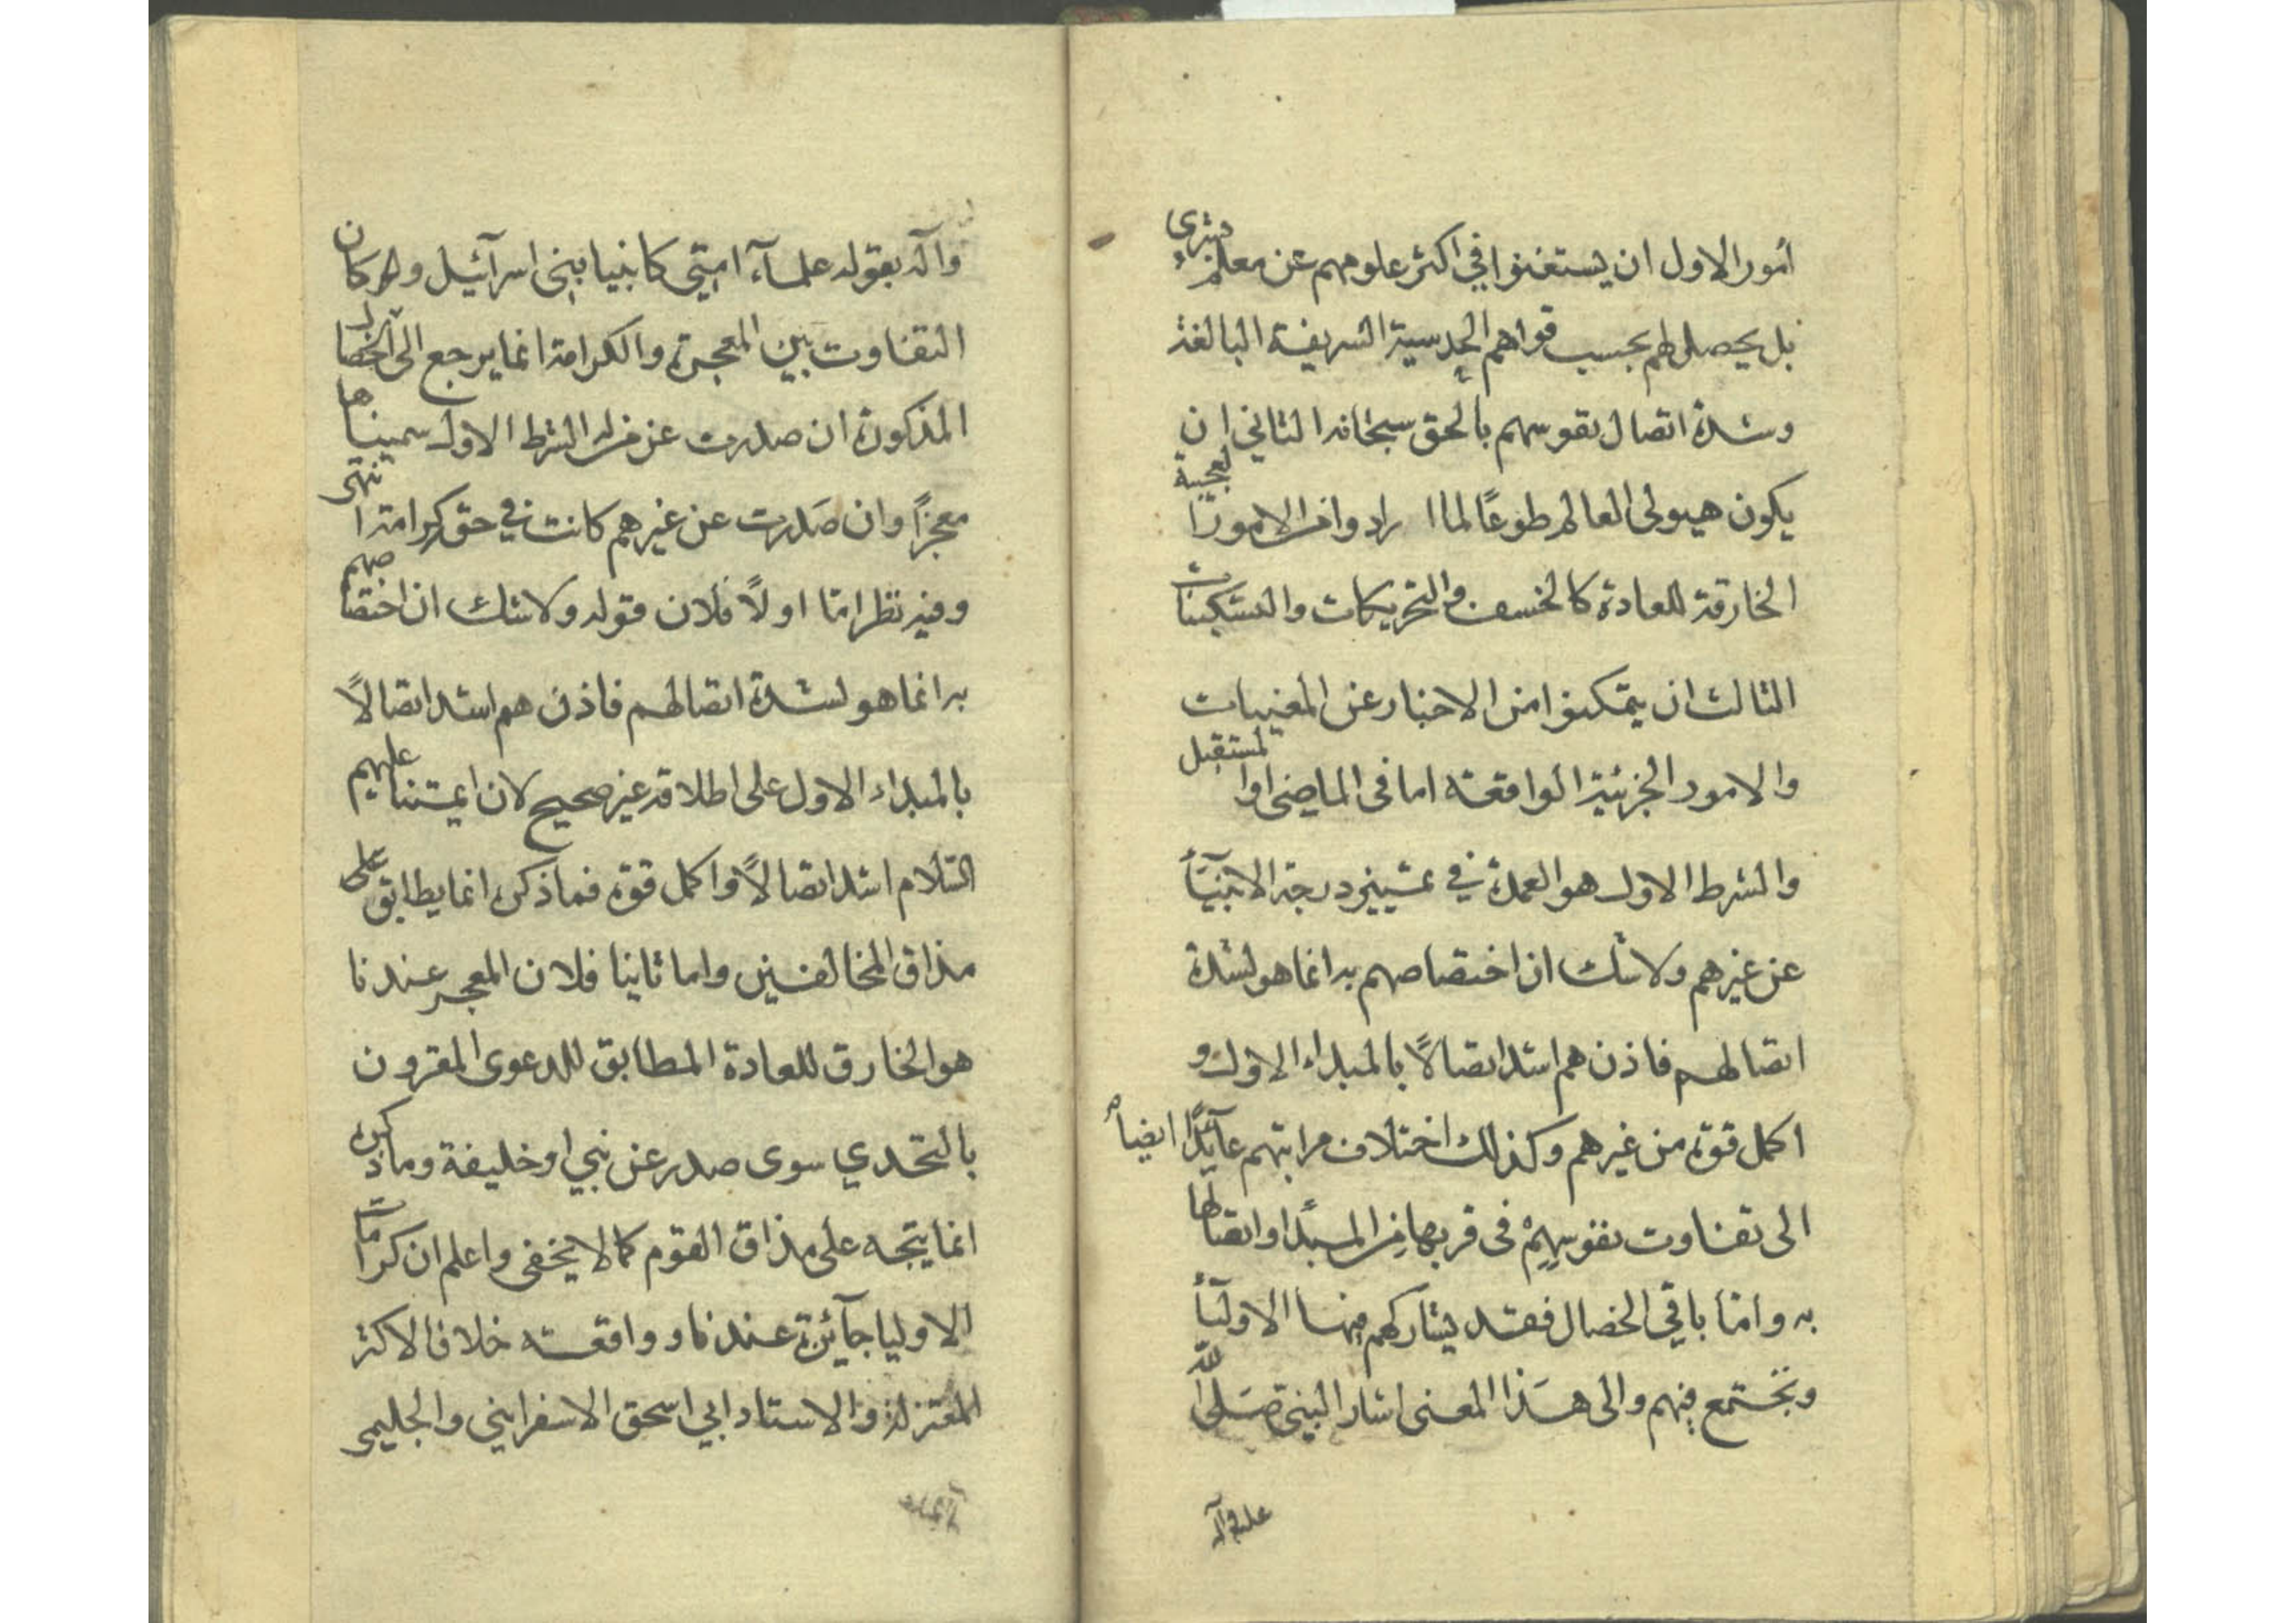 أمور الاول ان يستغنوا في اكثر علومهم عن معلم بشري
بل يحصل لهم بحسب قواهم الحدسية الشريفة البالغة
وشدة اتصال نفوسهم بالحق سبحانه الثاني ان
يكون هيولى العالم طوعًا لما ارادوا من الامور العجيبة
الخارقة للعادة كالخسف والتحريكات والتسكينات
الثالث ان يتمكنوا من الاخبار عن المغيبات
والامور الجزئية الواقعة اما في الماضى او المستقبل
والشرط الاول هو العمدة في تمييز درجة الانبيآء
عن غيرهم ولا شك ان اختصاصهم به انما هو لشدة
اتصالهم فاذن هم اشد اتصالًا بالمبداء الاول و
اكمل قوة من غيرهم وكذلك اختلاف مراتبهم عآئد ايضاً
الى تفاوت نفوسهم فى قربها من المبدا واتصالها
به وامّا باقي الخصال فقد يشاركهم فيها الاوليآء
وتجتمع فيهم والى هذا المعنى اشار النبي صَلى الله
عليه وآله
وآله بقوله علمآء امتي كانبيا بنى اسرآئيل ولو كان
التفاوت بين المعجزة والكرامة انما يرجع الى الخصال
المذكورة ان صدرت عن من له الشرط الاول سميناها
معجزاً وان صَدرت عن غيرهم كانت في حقه كرامة انتهى
وفيه نظر امّا اولاً فلان قوله ولا شك ان اختصاصهم
به انما هو لشدة اتصالهم فاذن هم اشد اتصالاً
بالمبداء الاول على اطلاقه غير صحيح لان ائمتنا عليهم
السّلام اشد اتصالاً واكمل قوة فما ذكره انما يطابق على
مذاق المخالفين واما ثانيا فلان المعجز عندنا
هو الخارق للعادة المطابق للدعوى المقرون
بالتحدي سوى صدر عن نبي او خليفة وما ذكره
انما يتجه على مذاق القوم كما لا يخفى واعلم ان كرامات
الاوليا جآئزة عندنا و واقعة خلافا لاكثر
المعتزلة والاستاد ابي اسحق الاسفرايني والحليمى